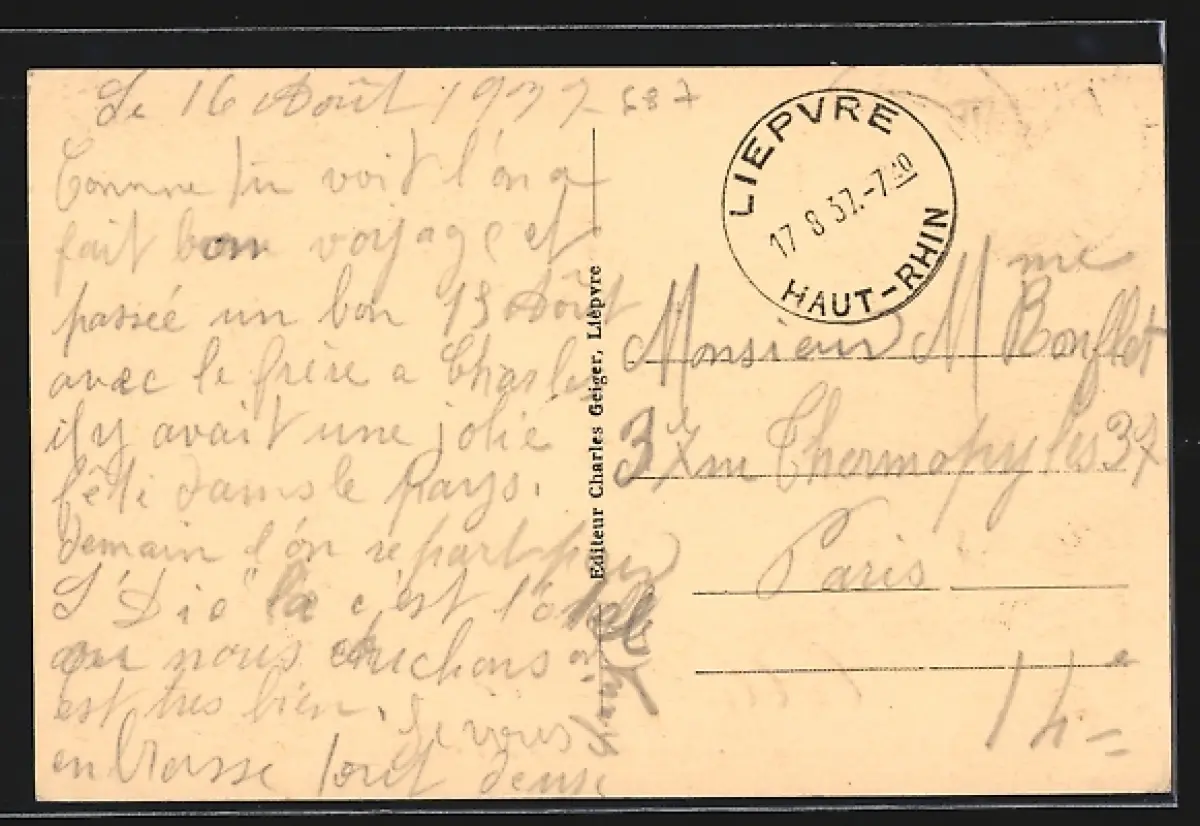 Le 16 Août 1937
Comme tu voit l'on a
fait bon voyage et
passée un bon 15 Août
avec le frère a Charles
il y avait une jolie
fête dans le Pays.
demain l'ôn repart pour
S' Dié la c'est l'ôtel
ou nous couchons on
est tres bien. Je vous
en brasse tout deuse
Editeur Charles Geiger, Lièpvre
LIEPVRE
17 8 37.-7
HAUT-RHIN
Monsieur Mme Bouflet
37 rue Thermopyles 37
Paris
14e